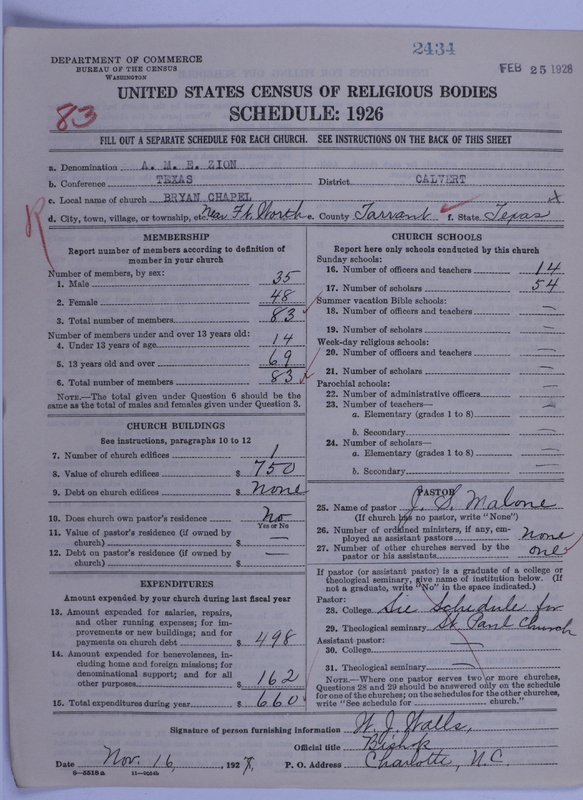 2434
FEB 25 1928
DEPARTMENT OF COMMERCE
BUREAU OF THE CENSUS
WASHINGTON
UNITED STATES CENSUS OF RELIGIOUS BODIES
SCHEDULE: 1926
83
FILL OUT A SEPARATE SCHEDULE FOR EACH CHURCH. SEE INSTRUCTIONS ON THE BACK OF THIS SHEET
a. Denomination A. M. E. ZION
b. Conference TEXAS District CALVERT
c. Local name of church BRYAN CHAPEL
d. City, town, village, or township, etc. Near Ft. Worth e. County Tarrant f. State Texas
R
MEMBERSHIP
Report number of members according to definition of
member in your church
Number of members, by sex:
1. Male 35
2. Female 48
3. Total number of members 83
Number of members under and over 13 years old:
4. Under 13 years of age 14
5. 13 years old and over 69
6. Total number of members 83
NOTE.—The total given under Question 6 should be the
same as the total of males and females given under Question 3.
CHURCH BUILDINGS
See instructions, paragraphs 10 to 12
7. Number of church edifices 1
8. Value of church edifices $ 750
9. Debt on church edifices $ None
10. Does church own pastor's residence No
Yes or No
11. Value of pastor's residence (if owned by
church) $ —
12. Debt on pastor's residence (if owned by
church) $ —
EXPENDITURES
Amount expended by your church during last fiscal year
13. Amount expended for salaries, repairs,
and other running expenses; for im-
provements or new buildings; and for
payments on church debt $ 498
14. Amount expended for benevolences, in-
cluding home and foreign missions; for
denominational support; and for all
other purposes $ 162
15. Total expenditures during year $ 660
CHURCH SCHOOLS
Report here only schools conducted by this church
Sunday schools:
16. Number of officers and teachers 14
17. Number of scholars 54
Summer vacation Bible schools:
18. Number of officers and teachers —
19. Number of scholars —
Week-day religious schools:
20. Number of officers and teachers —
21. Number of scholars —
Parochial schools:
22. Number of administrative officers —
23. Number of teachers—
a. Elementary (grades 1 to 8) —
b. Secondary —
24. Number of scholars—
a. Elementary (grades 1 to 8) —
b. Secondary —
PASTOR
25. Name of pastor J. S. Malone
(If church has no pastor, write "None")
26. Number of ordained ministers, if any, em-
ployed as assistant pastors None
27. Number of other churches served by the
pastor or his assistants one
If pastor (or assistant pastor) is a graduate of a college or
theological seminary, give name of institution below. (If
not a graduate, write "No" in the space indicated.)
Pastor:
28. College See Schedule for
29. Theological seminary St. Paul Church
Assistant pastor:
30. College —
31. Theological seminary —
NOTE.—Where one pastor serves two or more churches,
Questions 28 and 29 should be answered only on the schedule
for one of the churches; on the schedules for the other churches,
write "See schedule for church."
Signature of person furnishing information W. J. Walls,
Official title Bishop
Date Nov. 16, 1927, P. O. Address Charlotte, N.C.
8-5518a 11-9054b